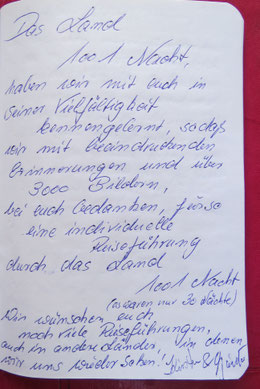 Das Land
1001 Nacht,
haben wir mit euch in
seiner Vielfältigkeit
kennengelernt, sodaß
wir mit beeindruckenden
Erinnerungen und über
3000 Bildern,
bei euch bedanken, für so
eine individuelle
Reiseführung
durch das Land
1001 Nacht
(es waren nur 20 Nächte)
Wir wünschen euch
noch viele Reiseführungen,
auch in andere Länder, in denen
wir uns wieder sehen!